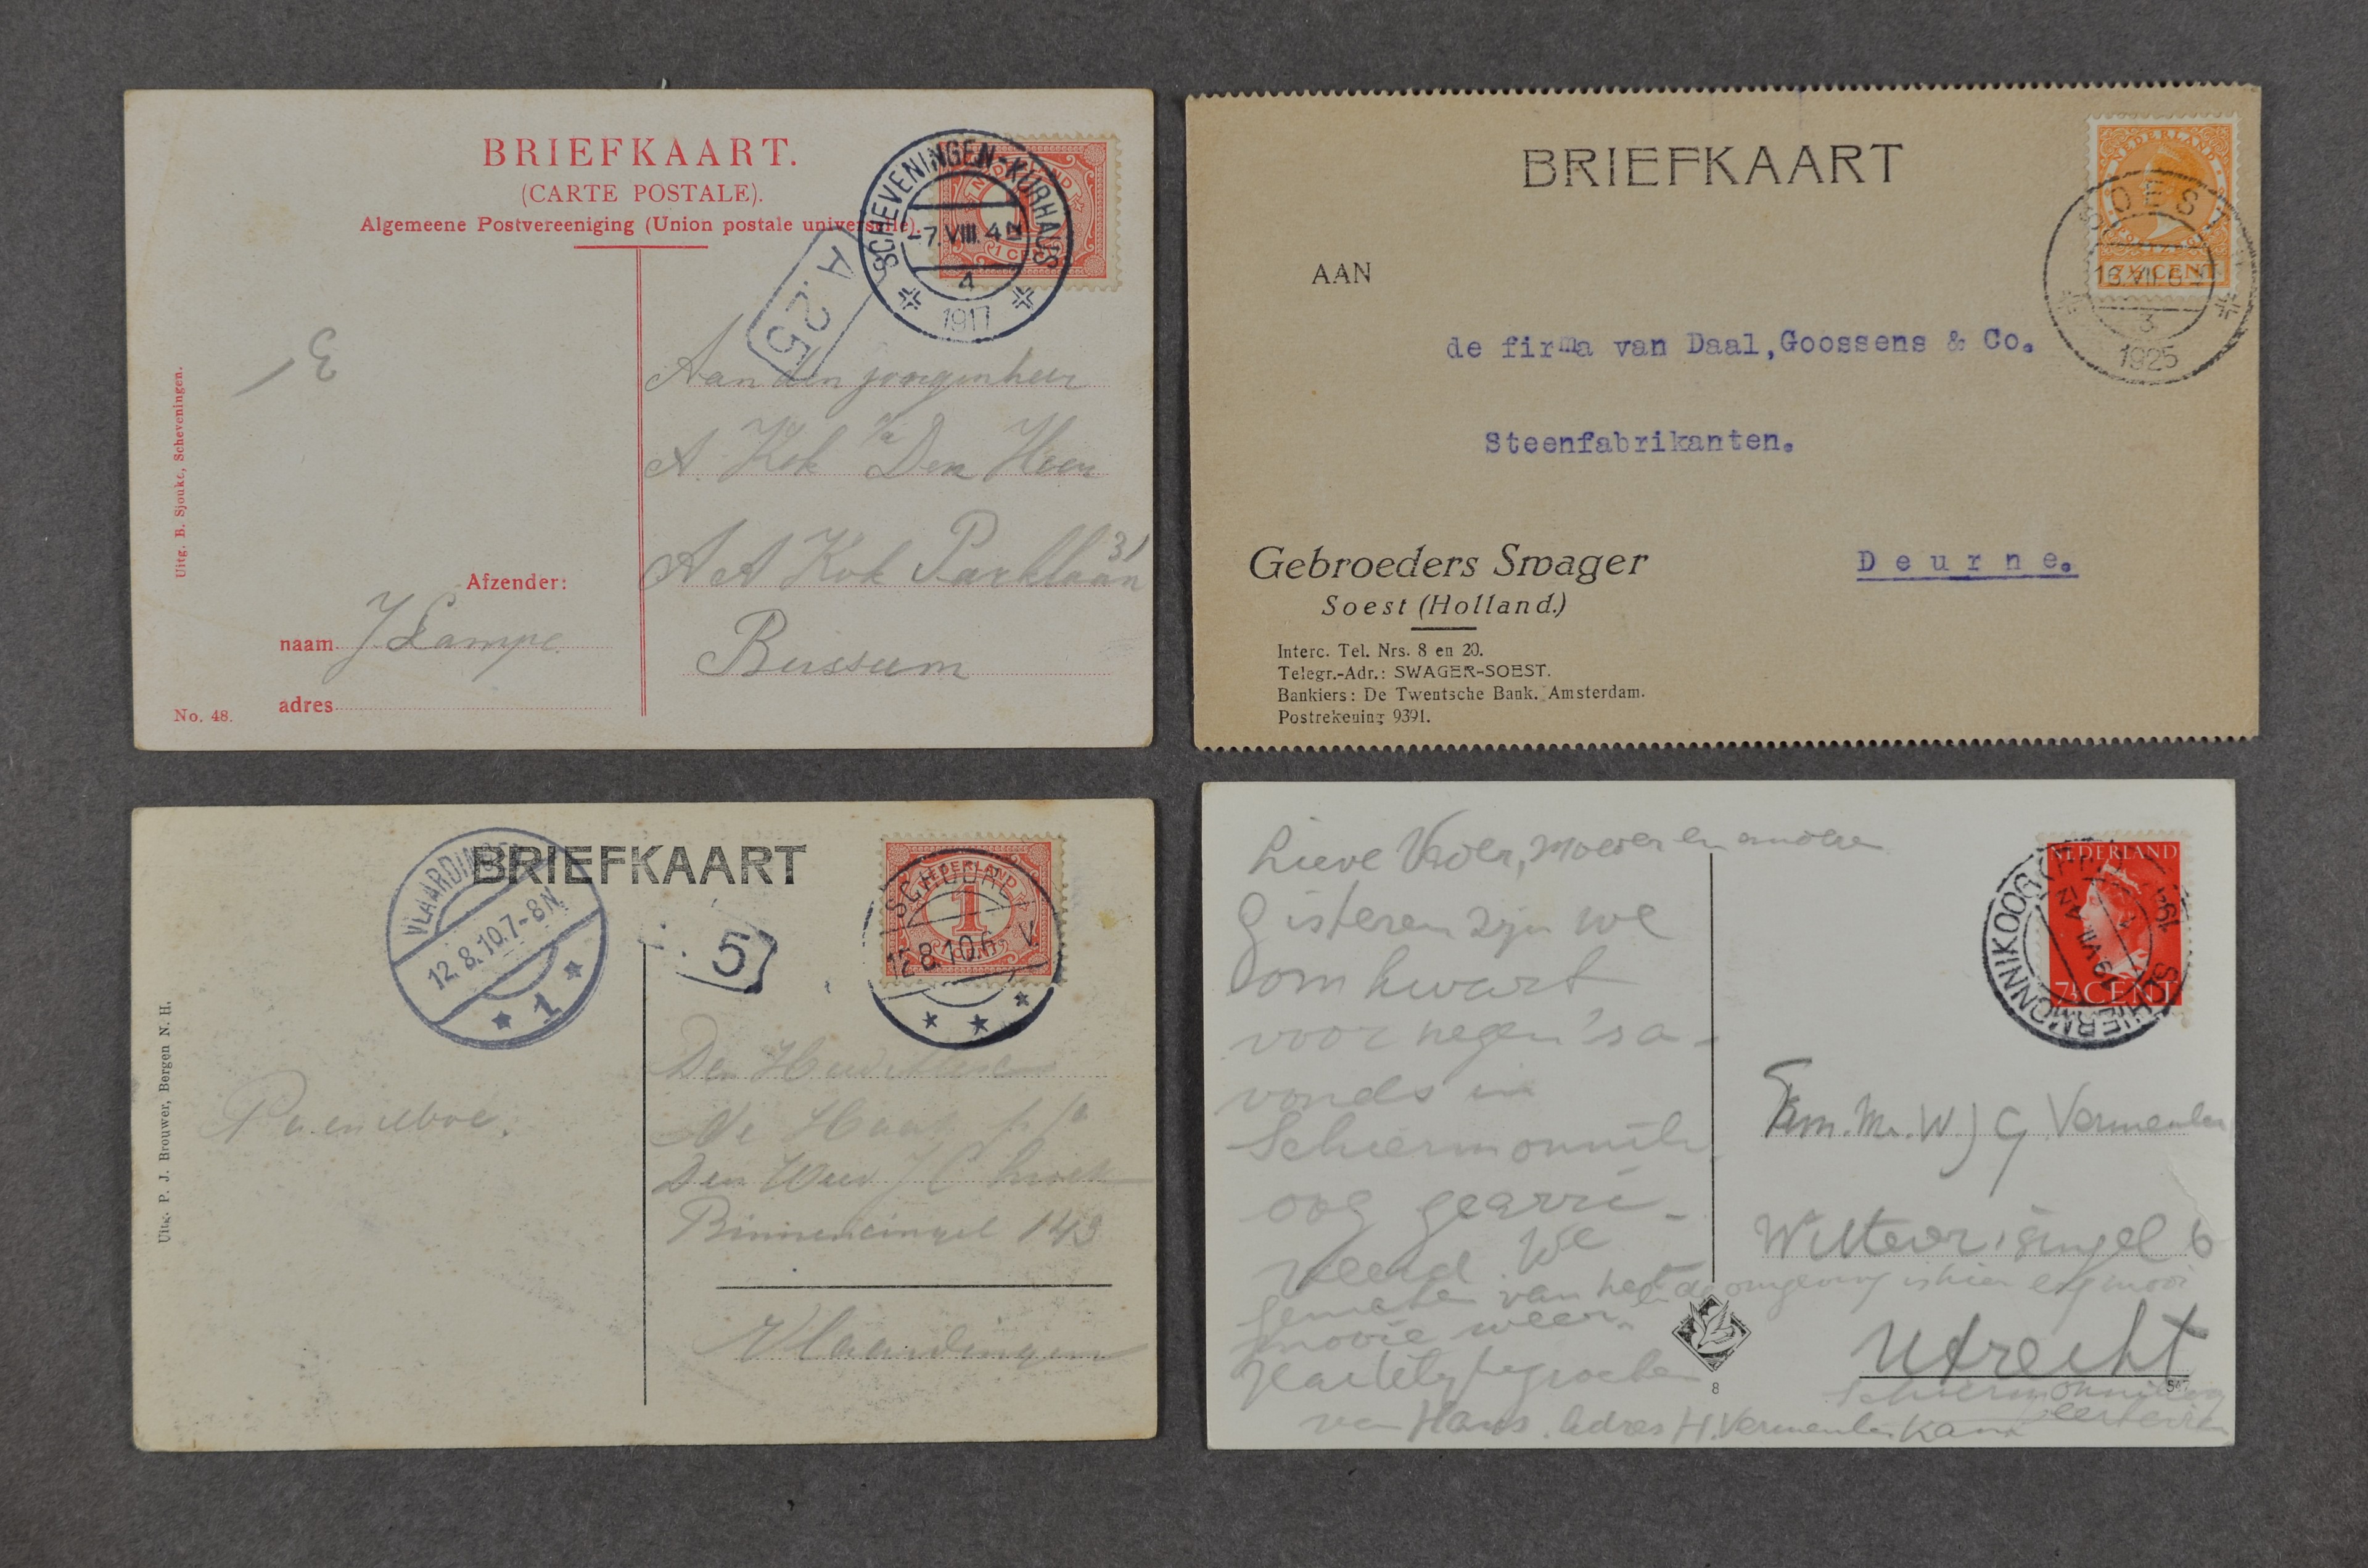 BRIEFKAART.
(CARTE POSTALE).
Algemeene Postvereeniging (Union postale universelle).
SCHEVENINGEN-KURHAUS
-7.VIII.4N
4
1917
NEDERLAND
1
1 CENT
A.25
3
Aan den jongenheer
A. Kok Den Heer
A A Kok Parklaan 31
Bussum
Afzender:
naam J. Lampe.
adres
Uitg. B. Sjouke, Scheveningen.
No. 48.
BRIEFKAART
NEDERLAND
7½ CENT
SOEST
16.VII.
3
1925
AAN
de firma van Daal,Goossens & Co.
Steenfabrikanten.
Deurne.
Gebroeders Swager
Soest (Holland.)
Interc. Tel. Nrs. 8 en 20.
Telegr.-Adr.: SWAGER-SOEST.
Bankiers: De Twentsche Bank. Amsterdam.
Postrekening 9391.
BRIEFKAART
VLAARDINGEN
12.8.10.7-8N.
1
5
NEDERLAND
1
12.8.10.6 V.
Den
de
Den
Binnensingel 143
Vlaardingen
Uitg. P. J. Brouwer, Bergen N. H.
Lieve Vader, Moeder en
Gisteren zijn we
om kwart
voor negen 's a-
vonds in
Schiermonnik
oog gearri-
veerd. We
genieten van het en de omgeving is hier erg mooi
mooie weer.
Hartelijk
van Hans. Adres H. Vermeulen Kamp
NEDERLAND
7½ CENT
SCHIERMONNIKOOG
Fam. Mr. W J G Vermeulen
Wittevr. singel 6
Utrecht
Schiermonnikoog
8